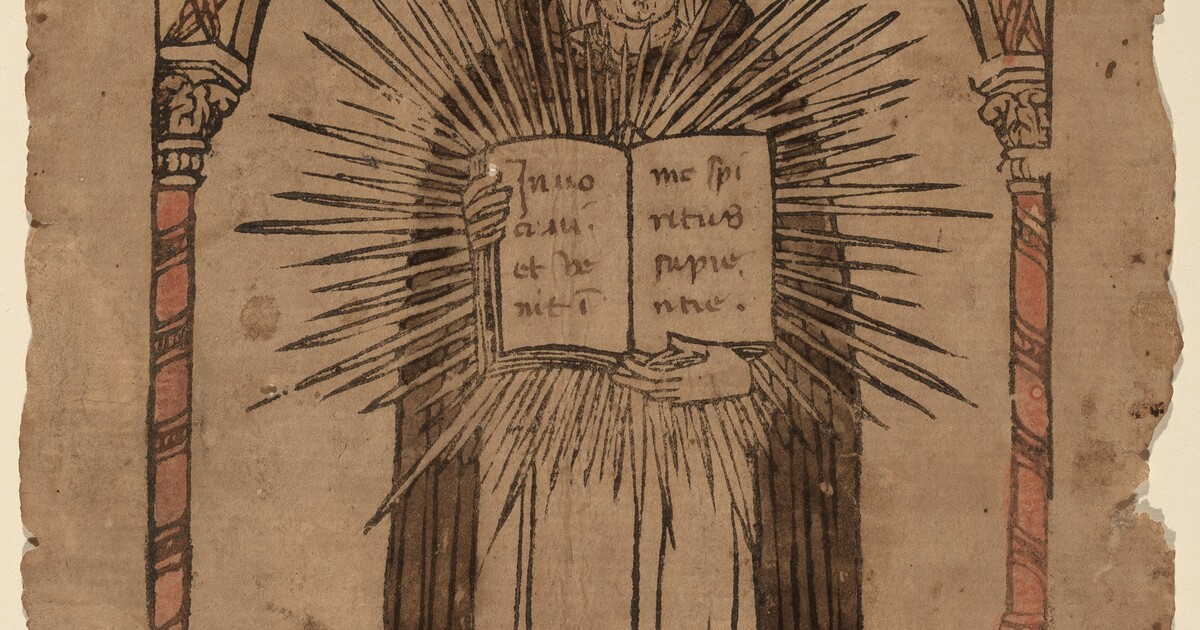 Inuo
caui.
et ve
nit ī
me spi
ritus
sapie.
ntie.